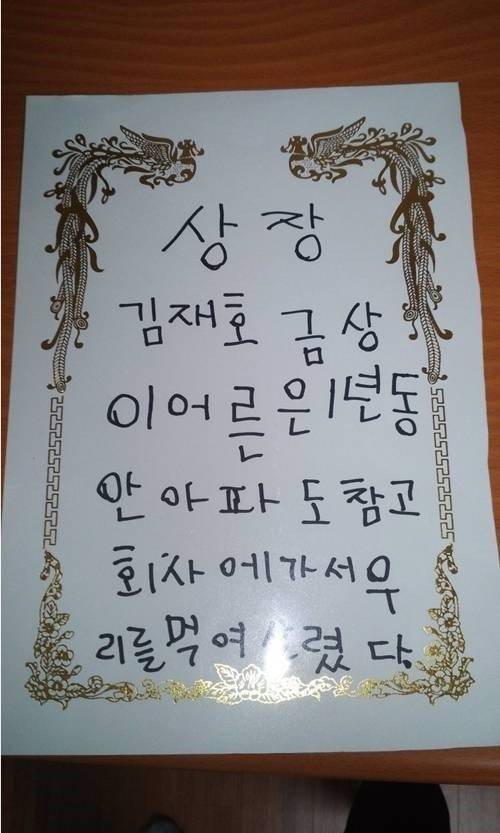 상장
김재호 금상
이어른은1년동
안 아파도참고
회사에가서우
리를먹여살렸다.